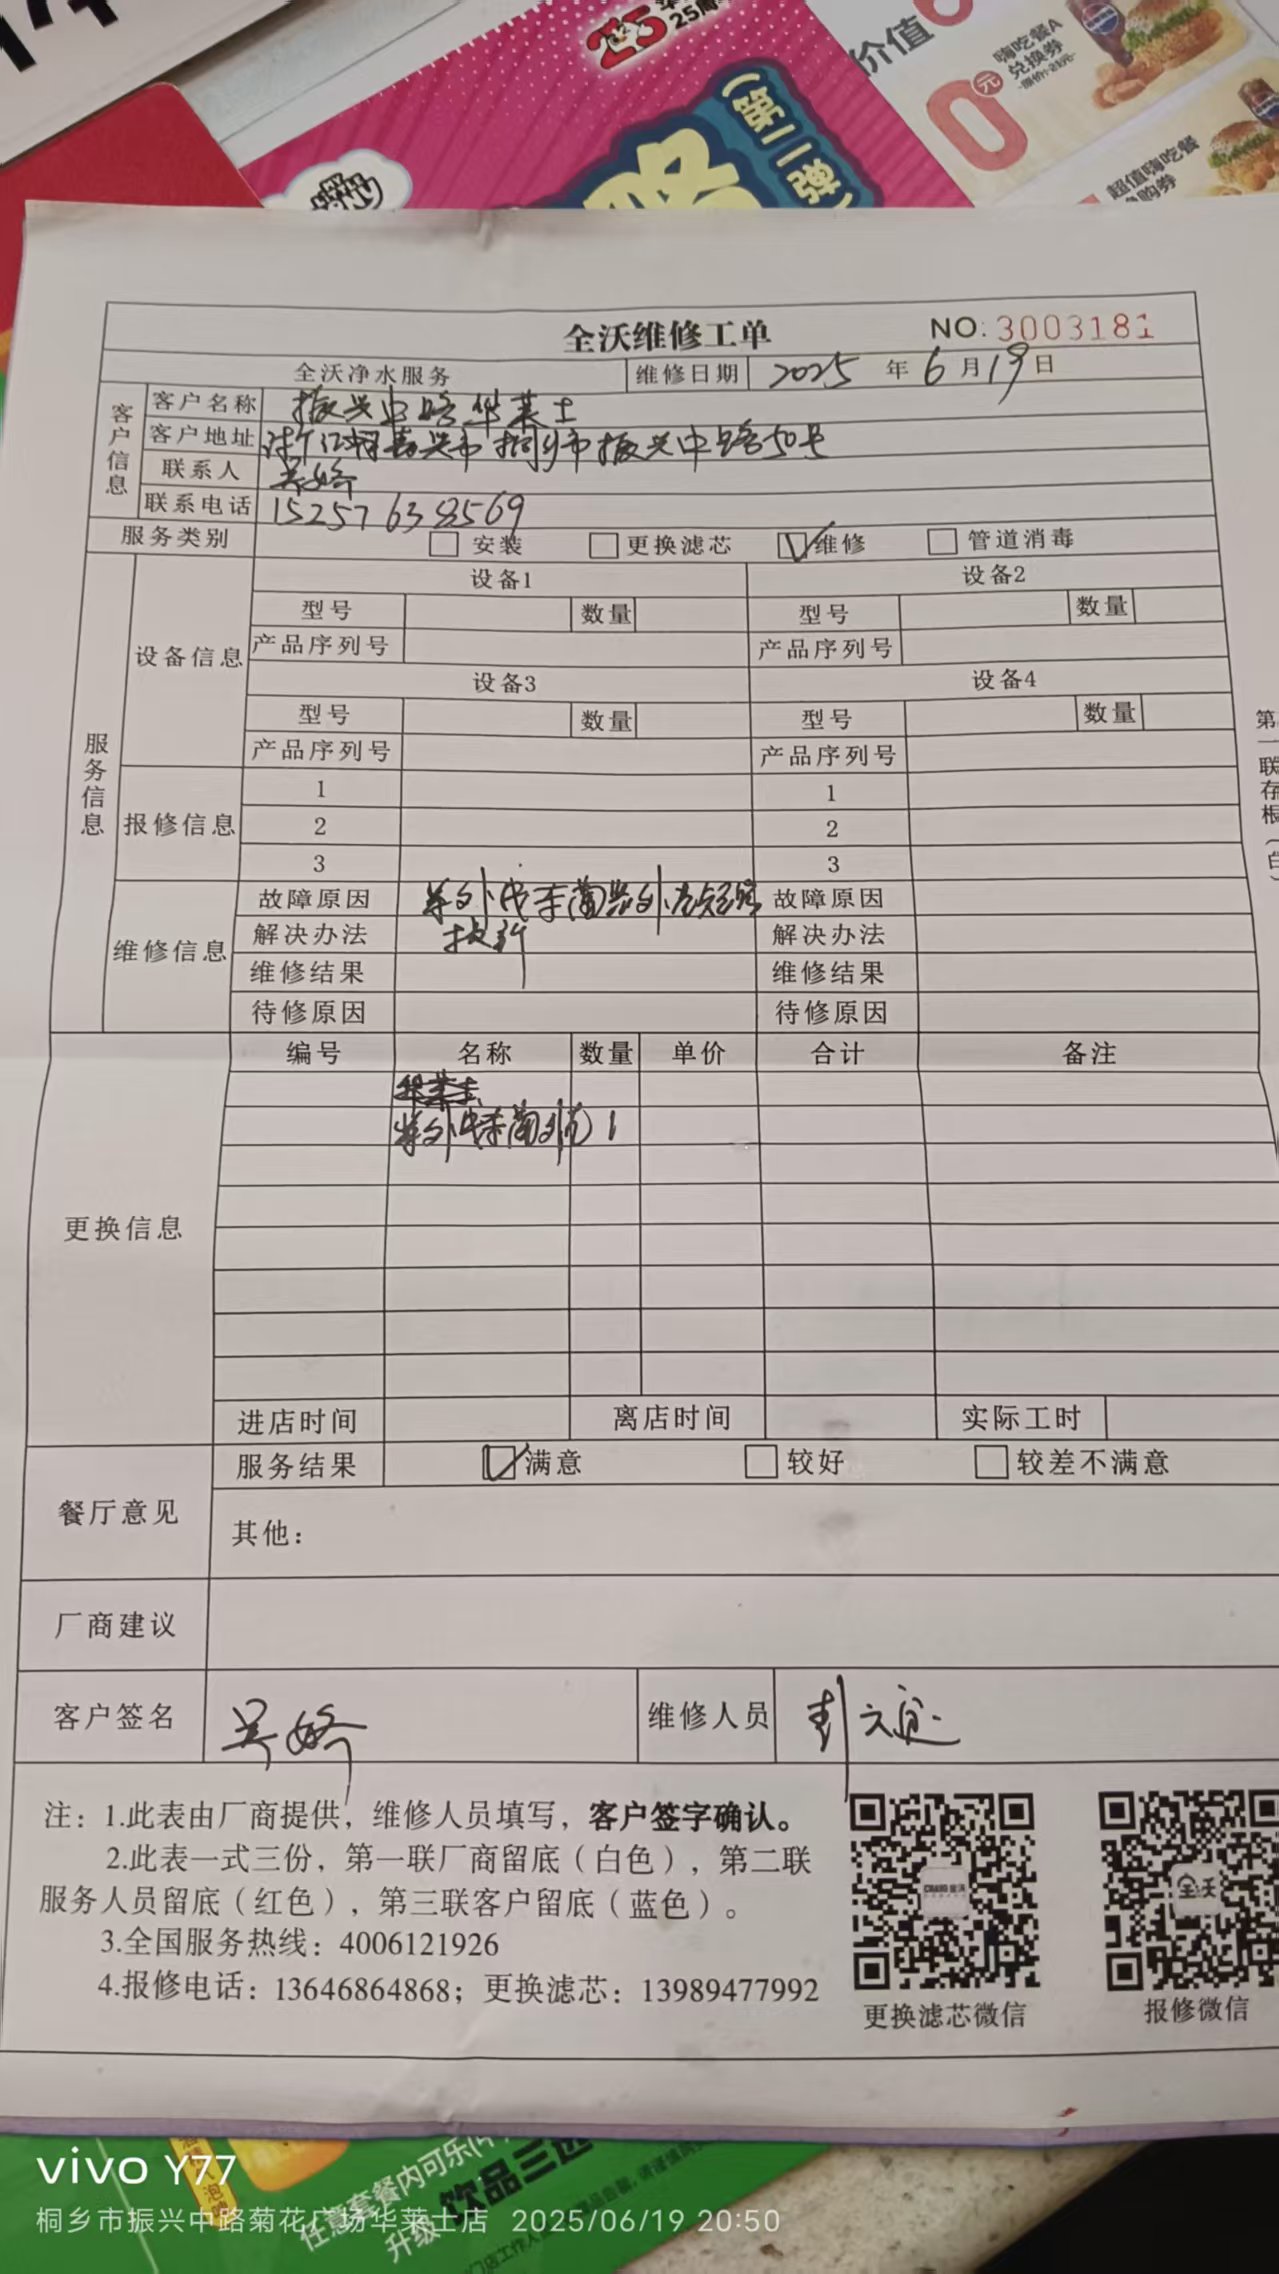 25
25周
(第二弹)
价值6
0元
嗨吃餐A
兑换券
超值嗨吃餐
换购券
全沃维修工单
NO:3003181
全沃净水服务 维修日期 2025 年 6 月 19 日
客户信息
客户名称 振兴中路华莱士
客户地址 浙江省嘉兴市桐乡市振兴中路50号
联系人 吴娇
联系电话 15257638569
服务类别 安装 更换滤芯 维修 管道消毒
服务信息
设备信息
设备1 设备2
型号 数量 型号 数量
产品序列号 产品序列号
设备3 设备4
型号 数量 型号 数量
产品序列号 产品序列号
报修信息
1 1
2 2
3 3
维修信息
故障原因 紫外线杀菌器外壳 故障原因
解决办法 换新 解决办法
维修结果 维修结果
待修原因 待修原因
更换信息
编号 名称 数量 单价 合计 备注
紫外线杀菌 1
进店时间 离店时间 实际工时
餐厅意见
服务结果 满意 较好 较差不满意
其他：
厂商建议
客户签名 吴娇 维修人员
注：1.此表由厂商提供，维修人员填写，客户签字确认。
2.此表一式三份，第一联厂商留底（白色），第二联
服务人员留底（红色），第三联客户留底（蓝色）。
3.全国服务热线：4006121926
4.报修电话：13646864868；更换滤芯：13989477992
更换滤芯微信
全沃
报修微信
第一联存根（白
任意套餐内可乐
升级饮品三选
vivo Y77
桐乡市振兴中路菊花广场华莱士店 2025/06/19 20:50